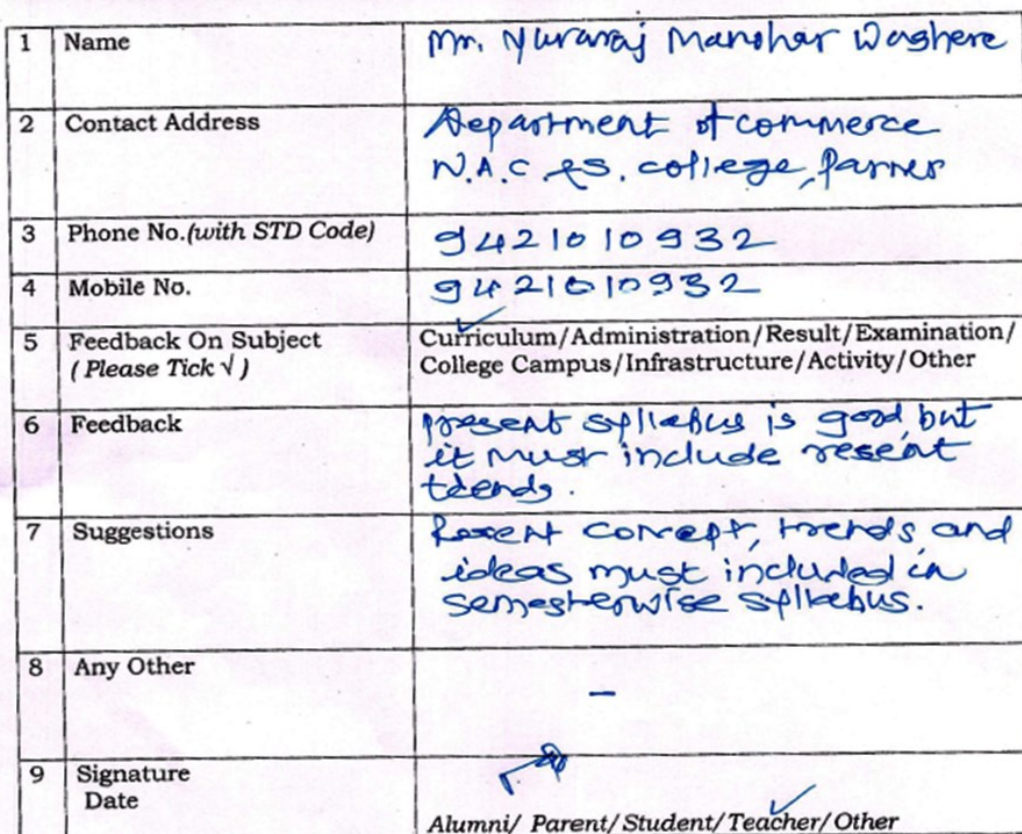 1 Name Mr. Yuvaraj Manohar Waghere
2 Contact Address Department of commerce
N.A.C. &S. college, Parner
3 Phone No.(with STD Code) 9421010932
4 Mobile No. 9421010932
5 Feedback On Subject Curriculum/Administration/Result/Examination/
( Please Tick √ ) College Campus/Infrastructure/Activity/Other
6 Feedback present syllabus is good but
it must include resent
trends.
7 Suggestions Resent concept, trends, and
ideas must included in
semesterwise syllabus.
8 Any Other -
9 Signature
Date
Alumni/ Parent/ Student/ Teacher/ Other